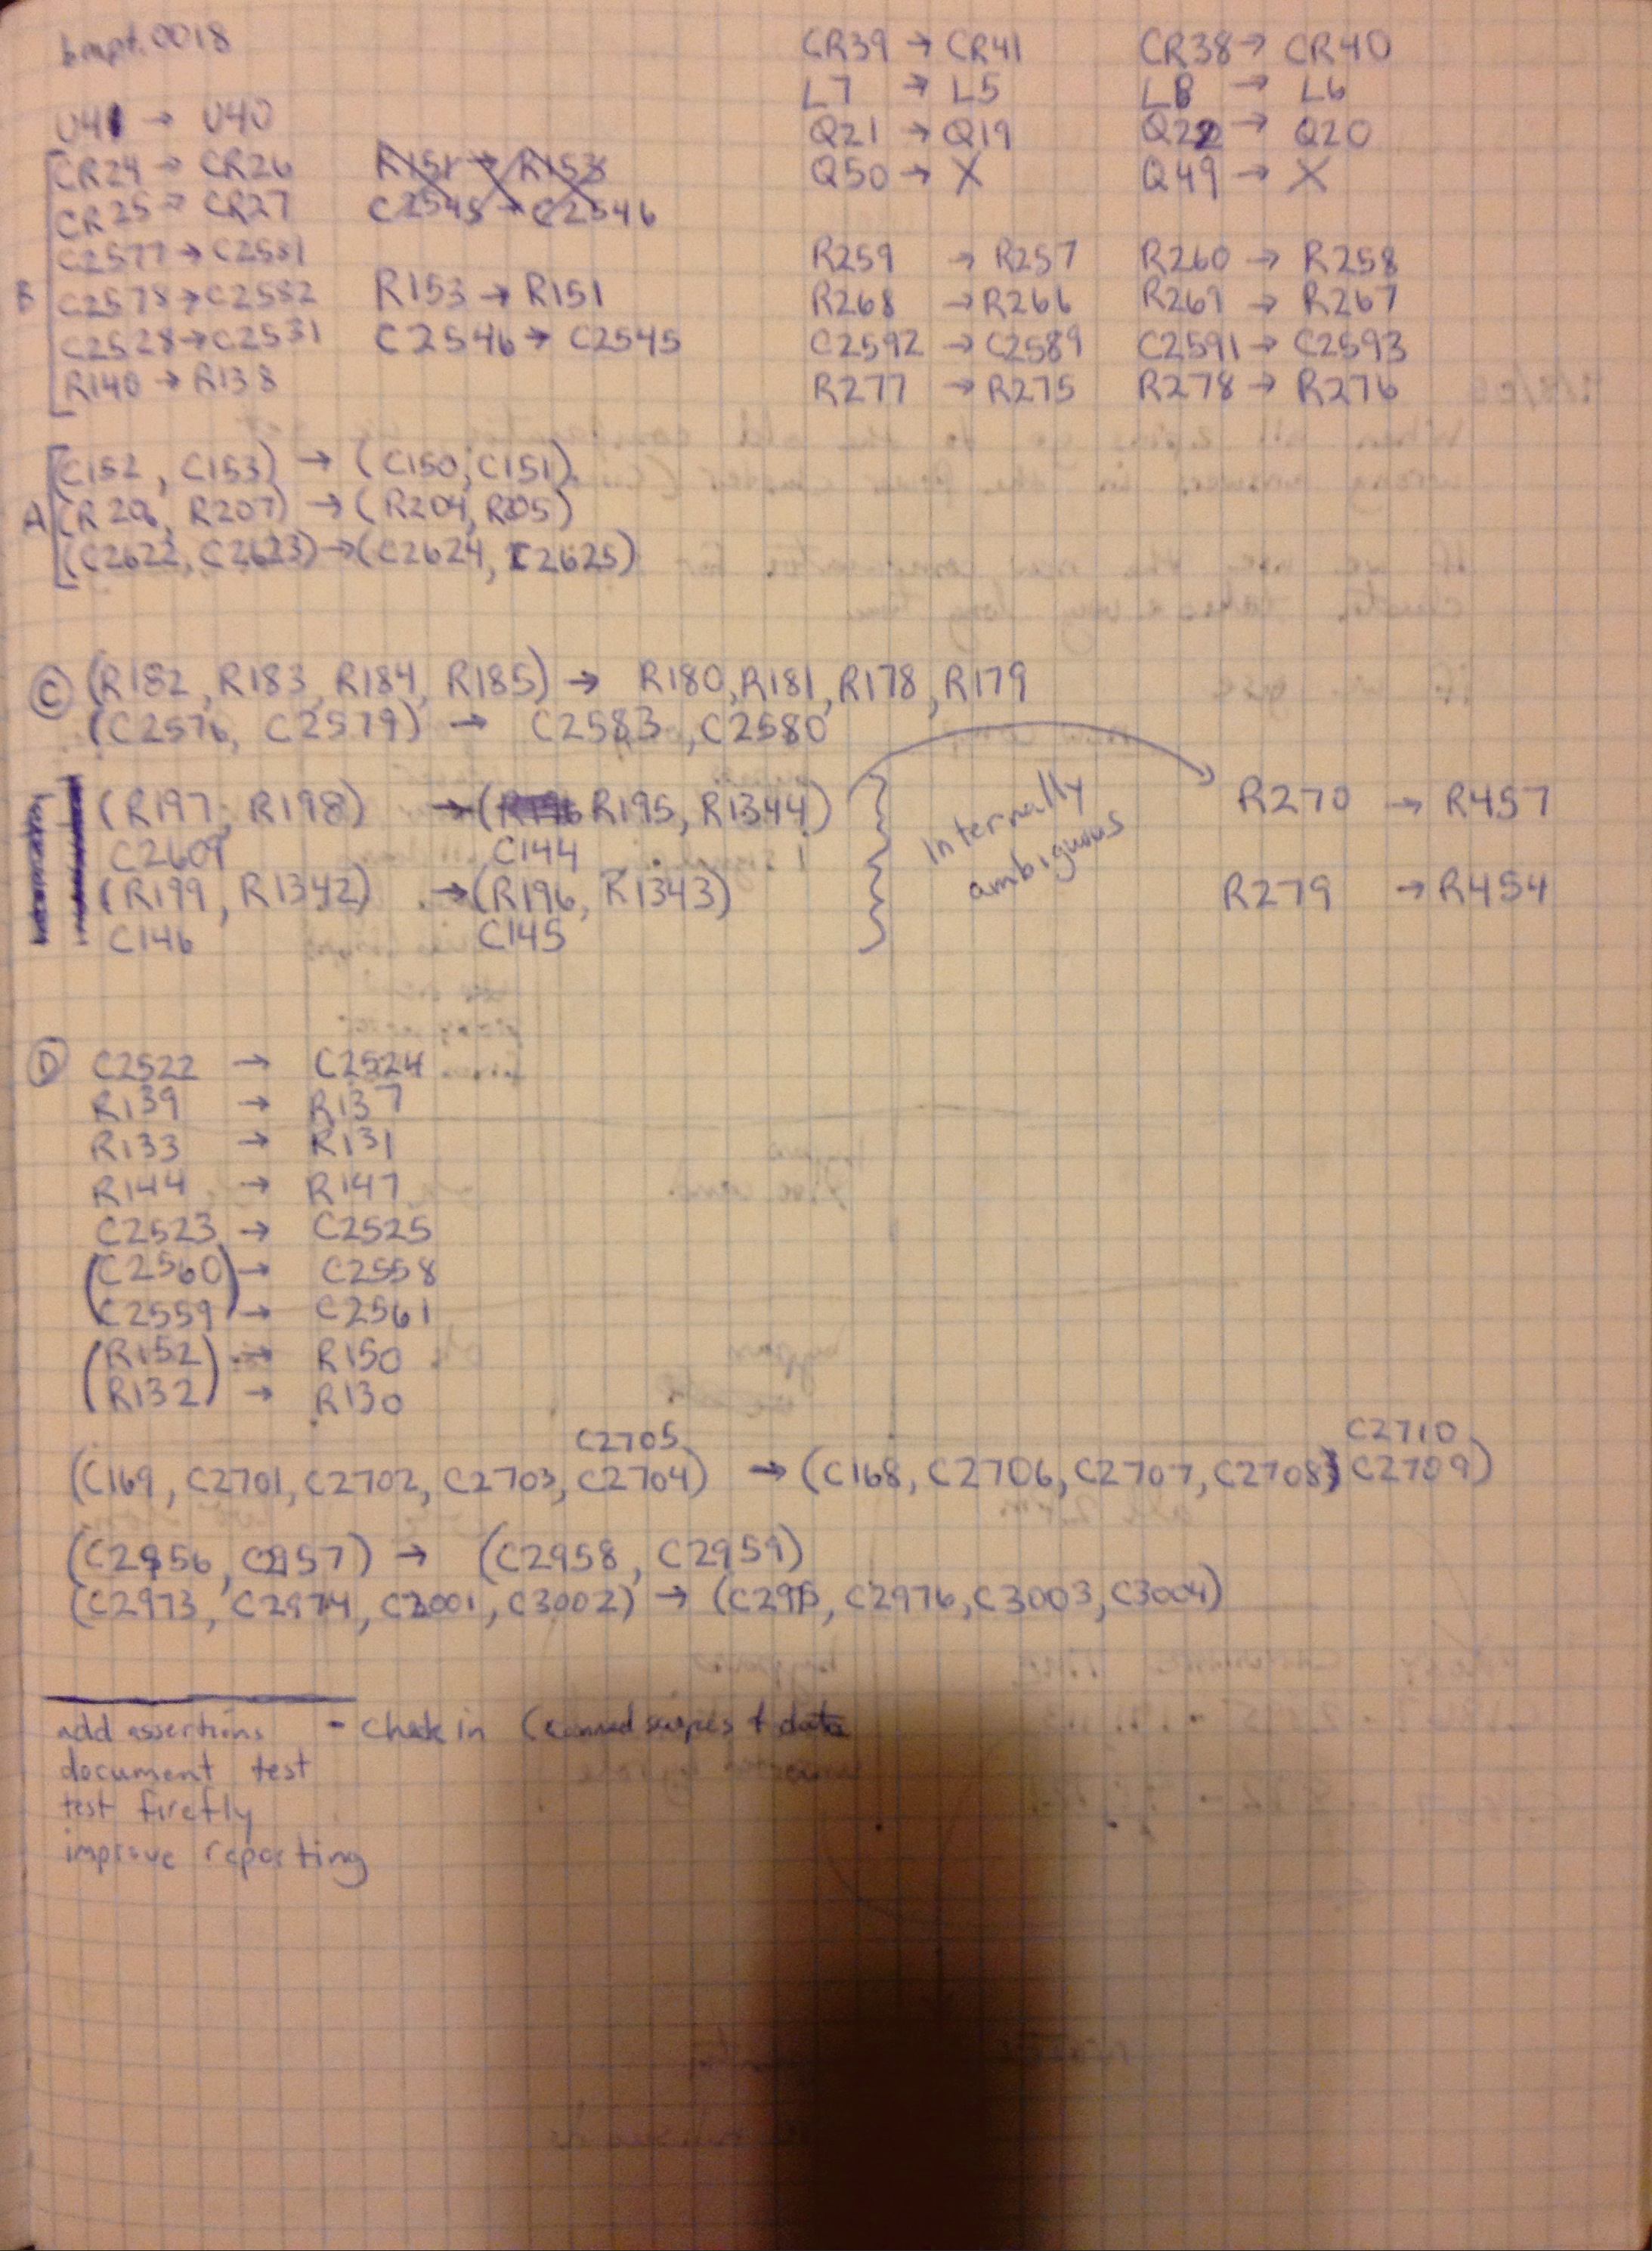 bmpt.0018
U41 → U40
CR24 → CR26
CR25 → CR27
C2577 → C2581
B C2578 → C2582
C2528 → C2531
R140 → R138
R151 → R153
C2545 → C2546
R153 → R151
C2546 → C2545
CR39 → CR41
L7 → L5
Q21 → Q19
Q50 → X
R259 → R257
R268 → R266
C2592 → C2589
R277 → R275
CR38 → CR40
L8 → L6
Q22 → Q20
Q49 → X
R260 → R258
R269 → R267
C2591 → C2593
R278 → R276
(C152, C153) → (C150, C151)
A (R206, R207) → (R204, R205)
(C2622, C2623) → (C2624, C2625)
C (R182, R183, R184, R185) → R180, R181, R178, R179
(C2576, C2579) → C2583, C2580
(R197, R198) → (R195, R1344)
C2609 C144
(R199, R1342) → (R196, R1343)
C146 C145
Internally
ambiguous
R270 → R457
R279 → R454
D C2522 → C2524
R139 → R137
R133 → R131
R144 → R147
C2523 → C2525
(C2560) → C2558
(C2559) → C2561
(R152) → R150
(R132) → R130
C2705 C2710
(C169, C2701, C2702, C2703, C2704) → (C168, C2706, C2707, C2708, C2709)
(C2956, C2957) → (C2958, C2959)
(C2973, C2974, C3001, C3002) → (C2975, C2976, C3003, C3004)
add assertions - check in (canned scripts + data
document test
test firefly
improve reporting